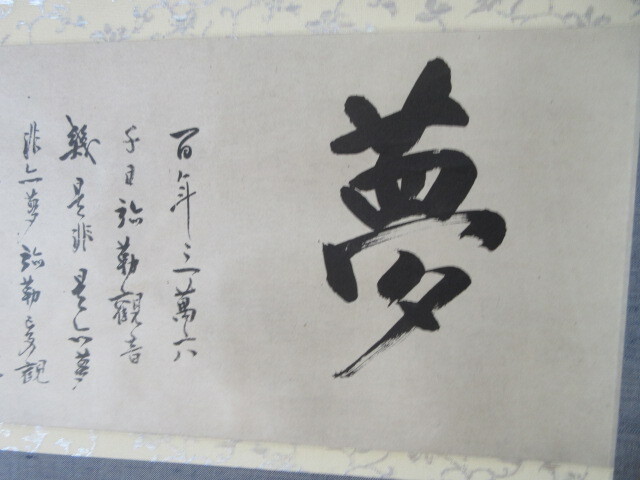 夢
百年三萬六
千日弥勒觀音
幾是非是亦夢
非亦夢弥勒夢觀